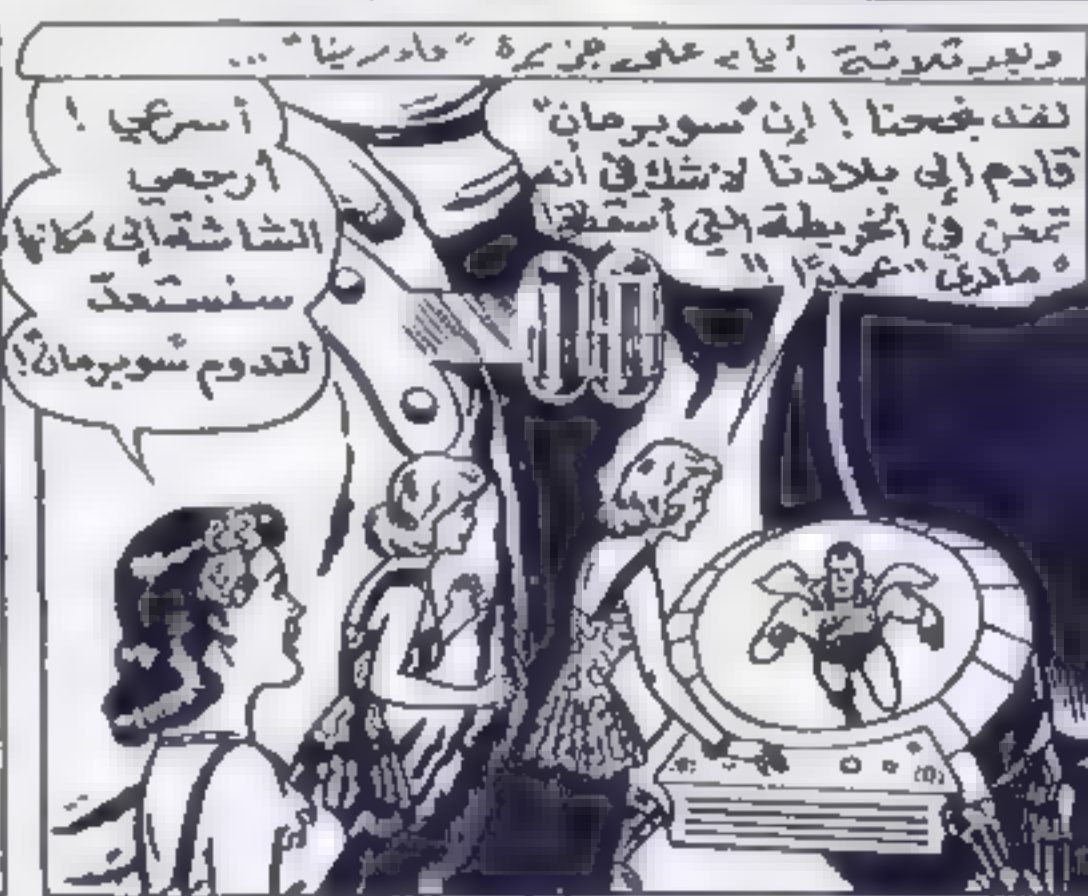 وبعد ثلاثة أيام على جزيرة "مادرينا" ...
لقد نجحنا ! إن "سوبرمان"
قادم إلى بلادنا لا شك في أنه
تمعّن في الخريطة التي أسقطتها
"مادي" "عمدًا"
أسرعي !
أرجعي
الشاشة إلى مكانها
سنستعدّ
لقدوم "سوبرمان"!